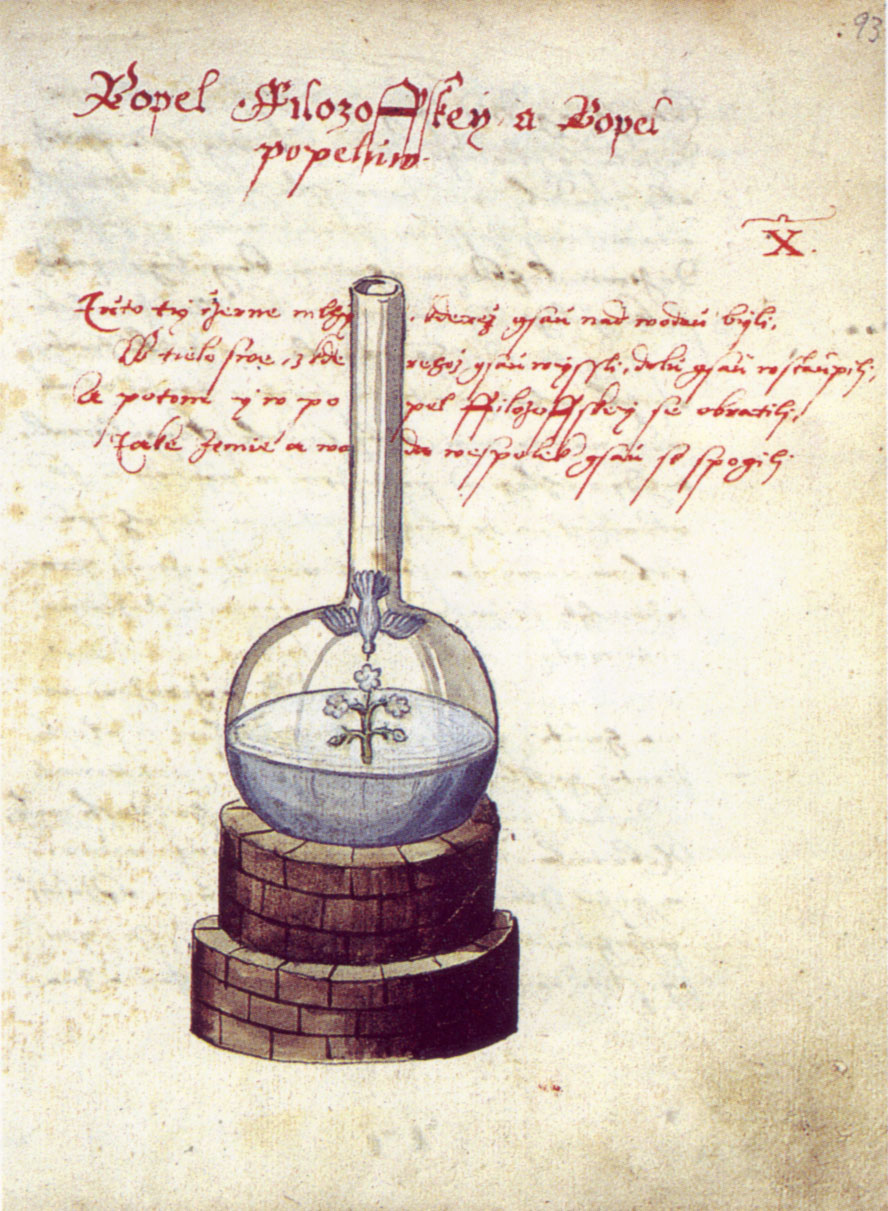 93
Popel Ffilozoffskey a Popel
popeluw.
X.
Tuto ty czerne mlhy, kderez gsau nad wodau byli,
W tielo swe, z kderehoz gsau wyssli, dolu gsau wstaupili,
A potom y w popel Ffilozoffskey se obratili,
Take Zemie a woda wespolek gsau se spogili